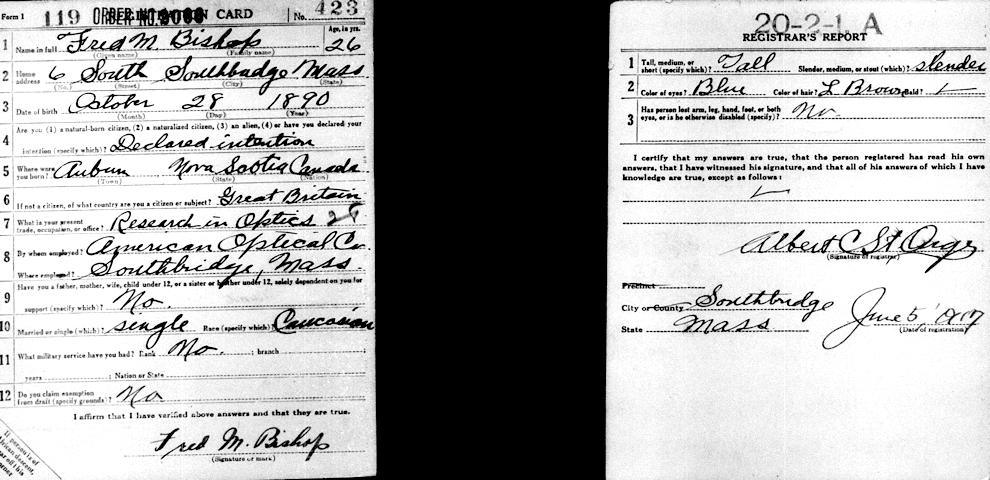 Form 1 119 REGISTRATION CARD No. 423
ORDER NO.
1 Name in full Fred M. Bishop Age, in yrs. 26
(Given name) (Family name)
2 Home address 6 South Southbridge Mass
(No.) (Street) (City) (State)
3 Date of birth October 28 1890
(Month) (Day) (Year)
4 Are you (1) a natural-born citizen, (2) a naturalized citizen, (3) an alien, (4) or have you declared your
intention (specify which)? Declared intention
5 Where were you born? Auburn Nova Scotia Canada
(Town) (State) (Nation)
6 If not a citizen, of what country are you a citizen or subject? Great Britain
7 What is your present trade, occupation, or office? Research in Optics 29
8 By whom employed? American Optical Co.
Where employed? Southbridge, Mass.
9 Have you a father, mother, wife, child under 12, or a sister or brother under 12, solely dependent on you for
support (specify which)? No.
10 Married or single (which)? single Race (specify which)? Caucasian
11 What military service have you had? Rank No. ; branch ;
years ; Nation or State
12 Do you claim exemption from draft (specify grounds)? No
I affirm that I have verified above answers and that they are true.
Fred M. Bishop
(Signature or mark)
If person is of
African descent,
corner
20-2-1 A
REGISTRAR'S REPORT
1 Tall, medium, or short (specify which)? Tall Slender, medium, or stout (which)? slender
2 Color of eyes? Blue Color of hair? L Brown Bald?
3 Has person lost arm, leg, hand, foot, or both
eyes, or is he otherwise disabled (specify)? No.
I certify that my answers are true, that the person registered has read his own
answers, that I have witnessed his signature, and that all of his answers of which I have
knowledge are true, except as follows:
Albert C St Onge
(Signature of registrar)
Precinct
City or County Southbridge
State Mass June 5, 1917
(Date of registration)